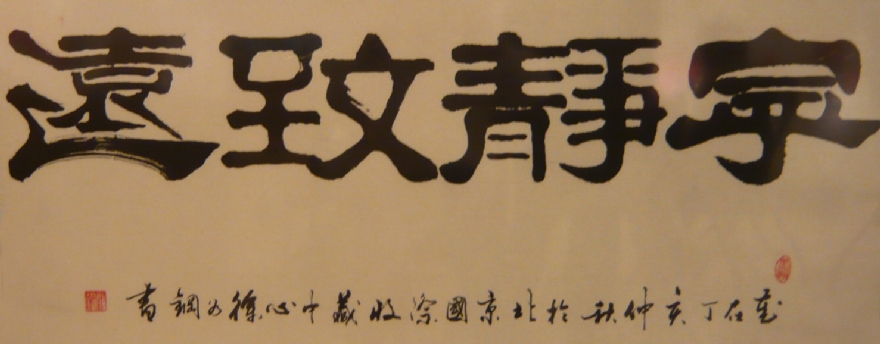 寧靜致遠
歲在丁亥仲秋於北京國際收藏中心徐鋼書